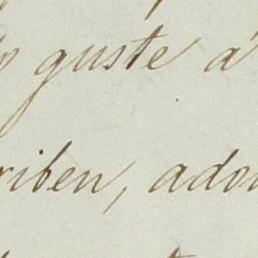 guste á
riben, ado